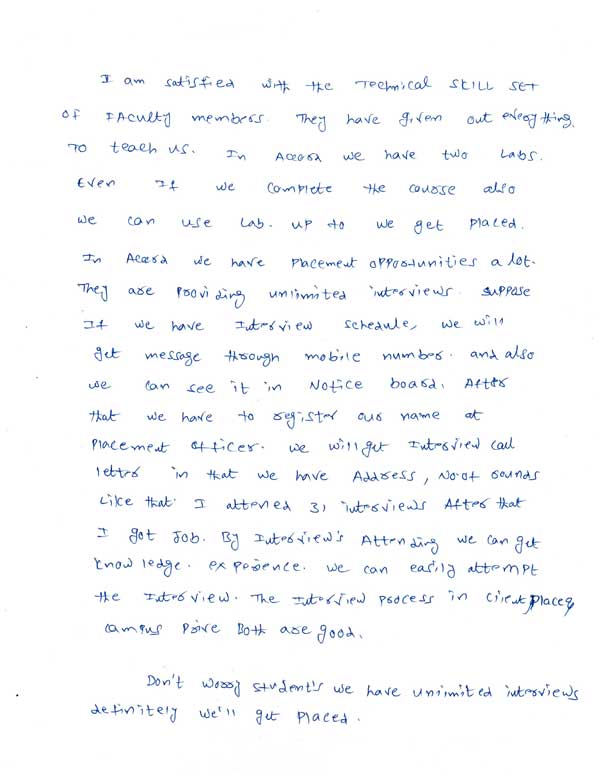 I am satisfied with the Technical SKILL SET
OF FACULTY members. They have given out everything
TO teach us. In Accord we have two Labs.
Even If we complete the course also
we can use Lab. up to we get placed.
In Accord we have placement opportunities a lot.
They are providing unlimited interviews. suppose
If we have Interview schedule, we will
get message through mobile number. and also
we can see it in Notice board. After
that we have to register our name at
placement officer. we will get Interview call
letter in that we have Address, No. of rounds
Like that. I attened 31 interviews After that
I got Job. By Interview's Attending we can get
knowledge. experience. we can easily attempt
the Interview. The Interview process in Client place &
campus Drive Both are good.
Don't worry student's we have unlimited interviews
definitely we'll get placed.